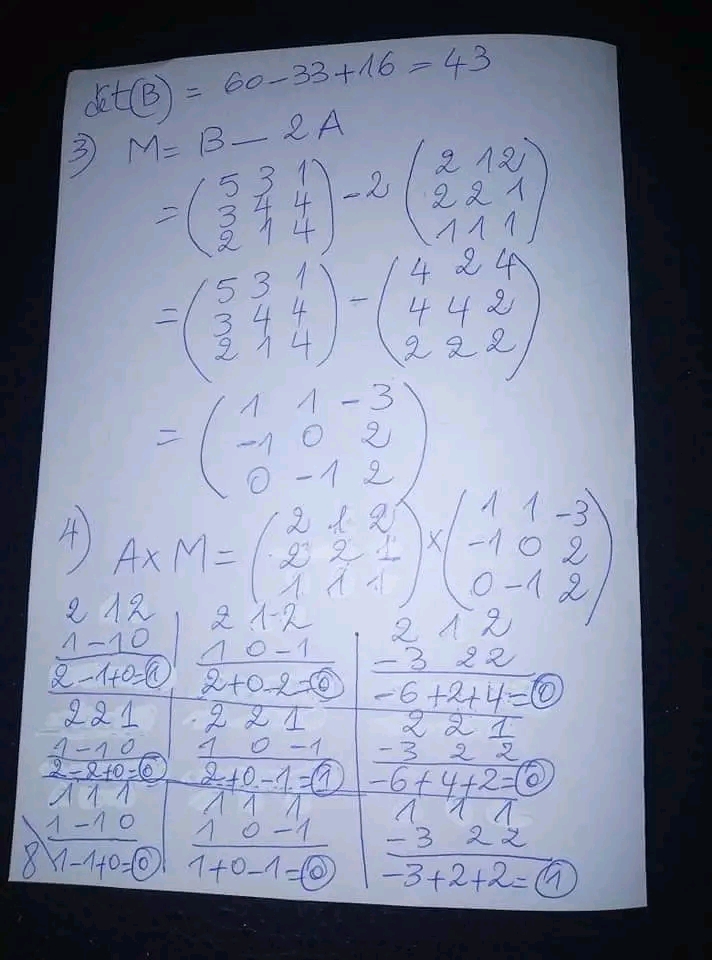 det(B) = 60-33+16 = 43
3) M = B - 2A
= (5 3 1
3 4 4
2 1 4) - 2 (2 1 2
2 2 1
1 1 1)
= (5 3 1
3 4 4
2 1 4) - (4 2 4
4 4 2
2 2 2)
= (1 1 -3
-1 0 2
0 -1 2)
4) A x M = (2 1 2
2 2 1
1 1 1) x (1 1 -3
-1 0 2
0 -1 2)
2 1 2
1 -1 0
2-1+0=1
2 1 2
1 0 -1
2+0-2=0
2 1 2
-3 2 2
-6+2+4=0
2 2 1
1 -1 0
2-2+0=0
2 2 1
1 0 -1
2+0-1=1
2 2 1
-3 2 2
-6+4+2=0
1 1 1
1 -1 0
1-1+0=0
1 1 1
1 0 -1
1+0-1=0
1 1 1
-3 2 2
-3+2+2=1
8